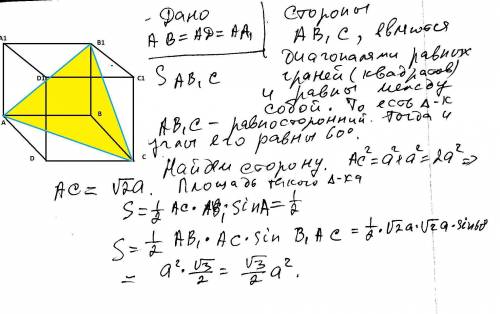 A1
B1
D1
C1
A
B
D
C
- Дано
AB = AD = AA₁
S AB₁C
Стороны
AB₁C, являются
диагоналями равных
граней (квадратов)
и равны между
собой. То есть Δ-к
AB₁C - равносторонний. Тогда и
углы его равны 60°.
Найдем сторону. AC² = a² + a² = 2a² ⇒
AC = √2a. Площадь такого Δ-ка
S = ½ AC · AB₁ · sin A = ½
S = ½ AB₁ · AC · sin B₁AC = ½ · √2a · √2a · sin 60
= a² · √3/2 = √3/2 a².